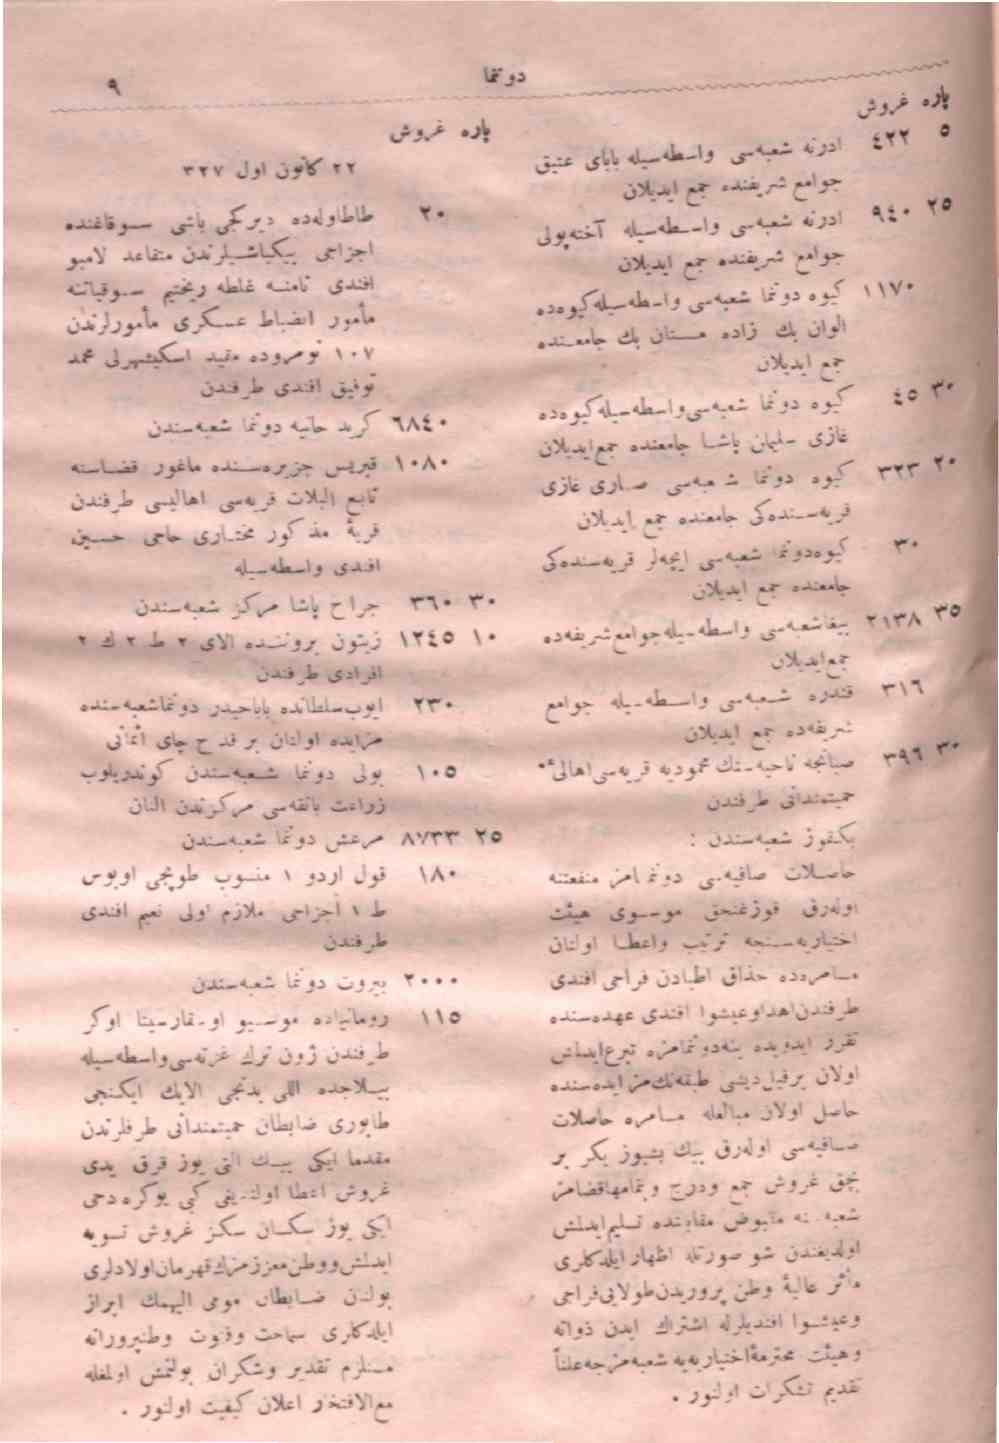 دوننما
٩
پاره غروش
٥ ٤٢٢ ادرنه شعبه‌سی واسطه‌سیله بابای عتیق
جوامع شریفنده جمع ایدیلان
٢٥ ٩٤٠ ادرنه شعبه‌سی واسطه‌سیله آخته‌پولی
جوامع شریفنده جمع ایدیلان
١١٧٠ كیوه دوننما شعبه‌سی واسطه‌سیله كیوه‌ده
الوان بك زاده مستان بك جامعنده
جمع ایدیلان
٣٠ ٤٥ كیوه دوننما شعبه‌سی واسطه‌سیله كیوه‌ده
غازی سلیمان پاشا جامعنده جمع ایدیلان
٢٠ ٣٢٣ كیوه دوننما شعبه‌سی صاری غازی
قریه‌سنده‌كی جامعنده جمع ایدیلان
٣٠ كیوه دوننما شعبه‌سی ایچه‌لر قریه‌سنده‌كی
جامعنده جمع ایدیلان
٣٥ ٢١٣٨ بیغا شعبه‌سی واسطه‌سیله جوامع شریفه‌ده
جمع ایدیلان
٣١٦ قندره شعبه‌سی واسطه‌سیله جوامع
شریفه‌ده جمع ایدیلان
٣٠ ٣٩٦ صبانجه ناحیه‌سنك محمودیه قریه‌سی اهالیء
حمیتمندانی طرفندن
بكفوز شعبه‌سندن :
حاصلات صافیه‌سی دوننمامز منفعتنه
اوله‌رق قوزغنجق موسوی هیئت
اختیاریه‌سنجه ترتیب واعطا اولنان
مسامره‌ده حذاق اطبادن فراجی افندی
طرفندن اهدا وعیشوا افندی عهده‌سنده
تقرر ایدوبده ینه دوننمامزه تبرع ایدلمش
اولان برفیل دیشی طبقه‌نك مزایده‌سنده
حاصل اولان مبالغله مسامره حاصلات
صافیه‌سی اوله‌رق بیك بشیوز یكرمی بر
بچق غروش جمع ودرج وبتمامها قضامز
شعبه‌سنه مقبوض مقابلنده تسلیم ایدلمش
اولدیغندن شو صورتله اظهار ایلدكلری
مآثر عالیهٔ وطن پروریدن طولایی فراجی
وعیشوا افندیلرله اشتراك ایدن ذواته
وهیئت محترمهٔ اختیاریه‌یه شعبه‌مزجه علناً
تقدیم تشكرات اولنور .
پاره غروش
٢٢ كانون اول ٣٢٧
٢٠ طاطاوله‌ده دمیركجی باشی سوقاغنده
اجزاجی بیكباشیلرندن متقاعد لامبو
افندی نامنه غلطه ریختیم سوقیاتنه
مأمور انضباط عسكری مأمورلرندن
١٠٧ نومروده مقید اسكیشهرلی محمد
توفیق افندی طرفندن
٦٨٤٠ كرید حانیه دوننما شعبه‌سندن
١٠٨٠ قبریس جزیره‌سنده ماغوز قضاسنه
تابع البلات قریه‌سی اهالیسی طرفندن
قریهٔ مذكور مختاری حاجی حسین
افندی واسطه‌سیله
٣٠ ٣٦٠ جراح پاشا مركز شعبه‌سندن
١٠ ١٢٤٥ زیتون بروننده الای ٢ ط ٢ ك ٢
افرادی طرفندن
٢٣٠ ایوب سلطانده بابا حیدر دوننما شعبه‌سنده
مزایده اولنان بر قدح چای اثمانی
١٠٥ بولی دوننما شعبه‌سندن كوندریلوب
زراعت بانقه‌سی مركزندن النان
٢٥ ٨٧٣٣ مرعش دوننما شعبه‌سندن
١٨٠ قول اردو ١ منسوب طوپجی اوبوس
ط ١ اجزاجی ملازم اولی نعیم افندی
طرفندن
٢٠٠٠ بیروت دوننما شعبه‌سندن
١١٥ رومانیاده موسیو اوسقار سیتا اوكر
طرفندن ژون ترك غزته‌سی واسطه‌سیله
بیلاجده اللی یدنجی الایك ایكنجی
طابوری ضابطان حمیتمندانی طرفلرندن
مقدما ایكی بیك التی یوز قرق یدی
غروش اعطا اولندیغی كبی بوكره دخی
ایكی یوز سكسان سكز غروش تسویه
ایدلمش ووطن معززمزك قهرمان اولادلری
بولنان ضابطان مومی الیهمك ابراز
ایلدكلری سماحت وفتوت وطنپرورانه
مستلزم تقدیر وشكران بولنمش اولمغله
مع‌الافتخار اعلان كیفیت اولنور .